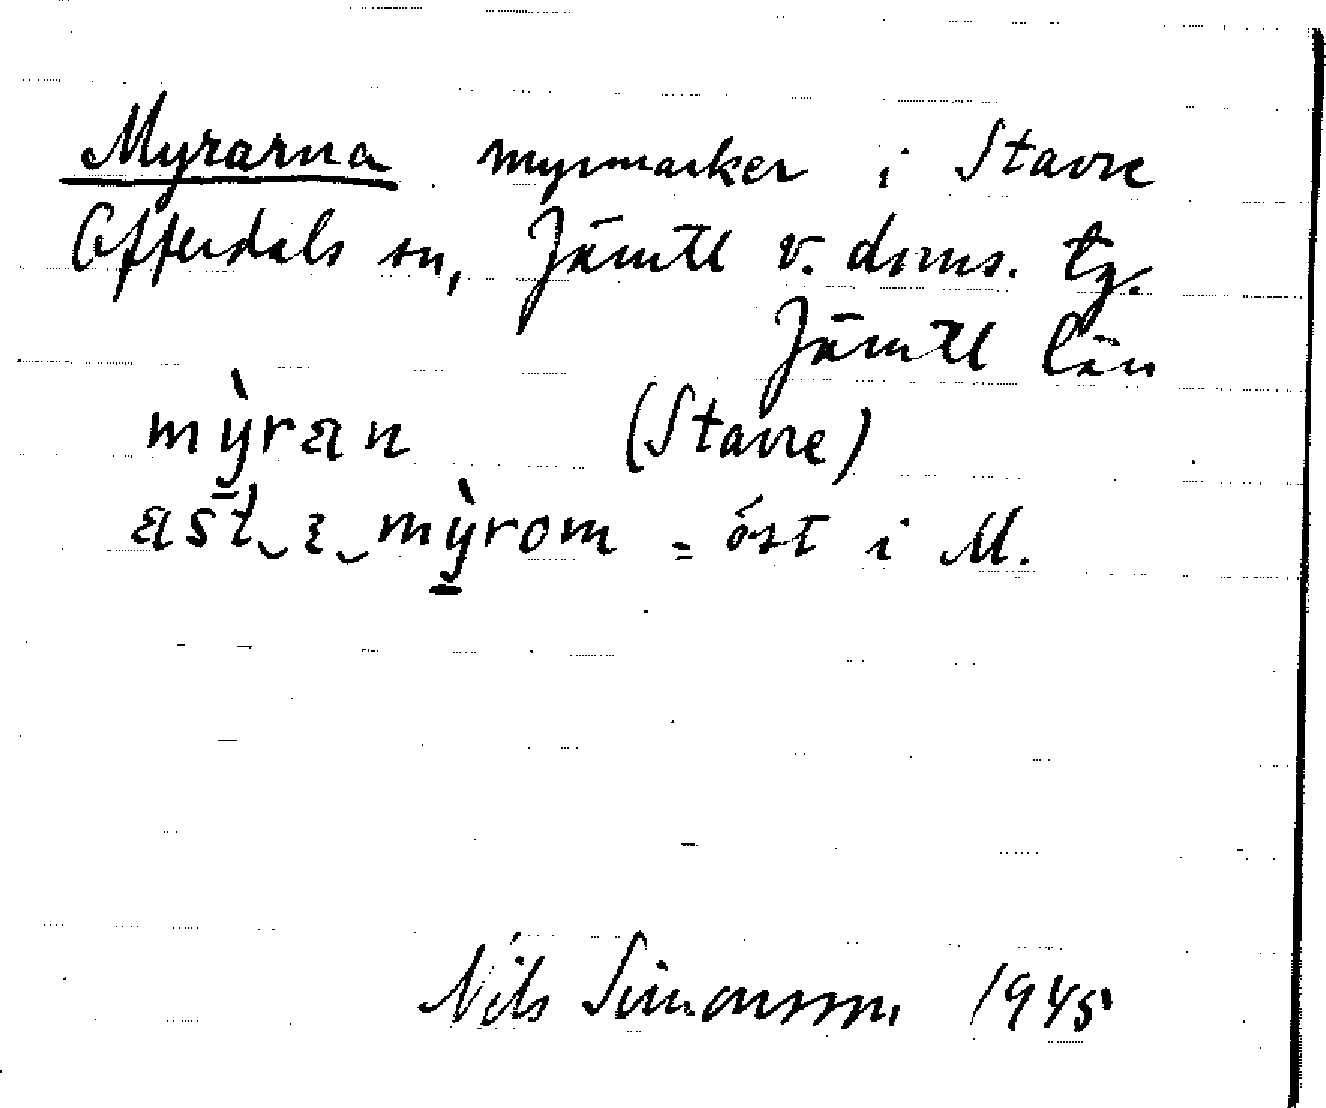 Myrarna myrmarker i Stavre
Offerdals sn, Jämtl v. doms. tg.
Jämtl län
mỳ̱ran (Stavre)
ast‿ɩ‿mỳ̱rom = öst i M.
Nils Simonsson 1945